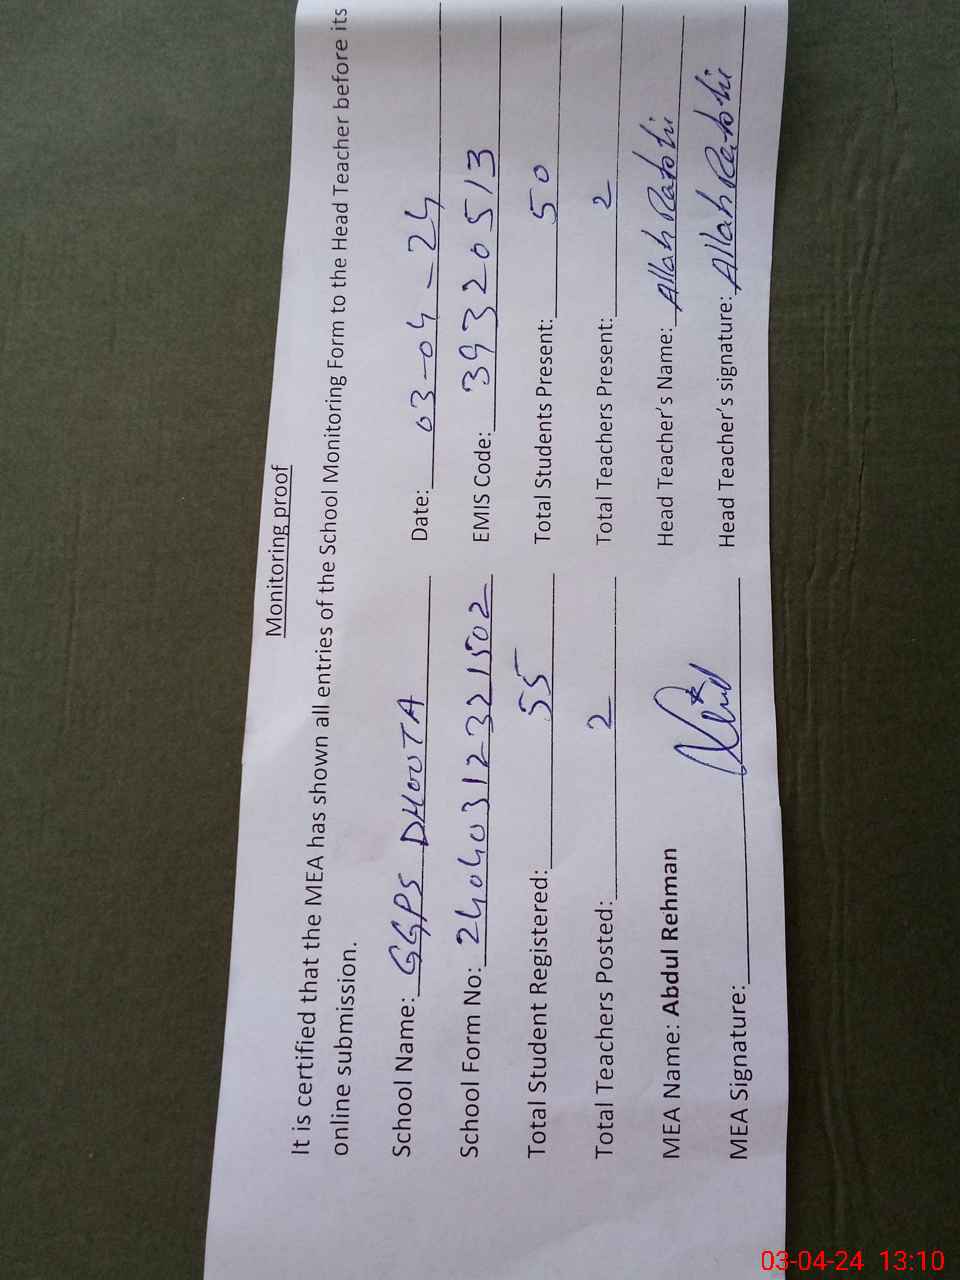 Monitoring proof
It is certified that the MEA has shown all entries of the School Monitoring Form to the Head Teacher before its
online submission.
School Name: GGPS DHOOTA Date: 03-04-24
School Form No: 240403123221502 EMIS Code: 39320513
Total Student Registered: 55 Total Students Present: 50
Total Teachers Posted: 2 Total Teachers Present: 2
MEA Name: Abdul Rehman Head Teacher's Name: Allah Ratohi
MEA Signature: Head Teacher's signature: Allah Ratohi
03-04-24 13:10